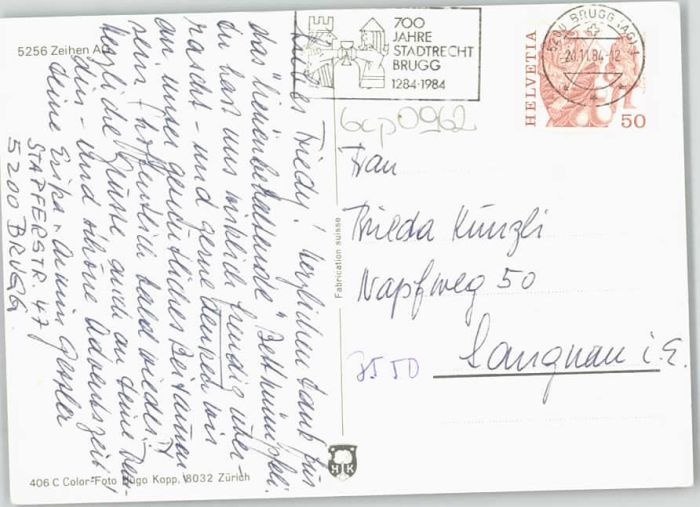 5256 Zeihen AG
700
JAHRE
STADTRECHT
BRUGG
1284·1984
5200 BRUGG (AG) 1
26.11.84-12
HELVETIA
50
bcp0962
Liebes Friedy! Herzlichen Dank für
das
du hast uns wirklich freudig über-
rascht - und gerne denken wir
an unser gemütliches Beisamen
sein, hoffentlich bald wieder!
herzliche Grüsse, auch an deine
- und schöne Adventszeit!
deine Erika + Armin Gessler
STAPFERSTR. 47
5200 BRUGG
Frau
Frieda Künzli
Napfweg 50
3550
Langnau i.E.
Fabrication suisse
H K
406 C Color-Foto Hugo Kopp, 8032 Zürich